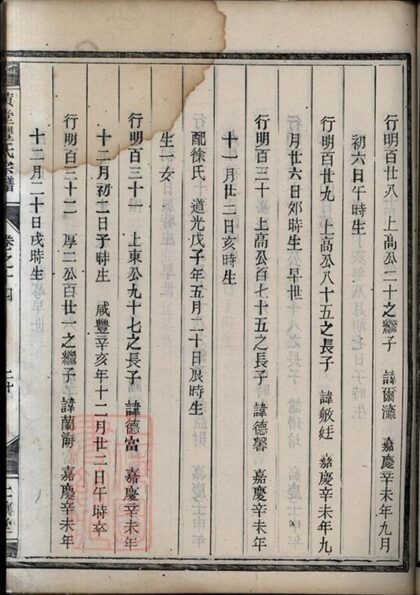 行明百廿八 上高公二十之繼子 諱爾瀟 嘉慶辛未年九月
初六日午時生
行明百廿九 上高公八十五之長子 諱敏 嘉慶辛未年九
月廿六日卯時生 早世
行明百三十 上高公百七十五之長子 諱德馨 嘉慶辛未年
十一月廿二日亥時生
配徐氏 道光戊子年五月二十日辰時生
生一女
行明百三十一 上東公九十七之長子 諱德富 嘉慶辛未年
十二月初二日子時生 咸豐辛亥年十二月廿二日午時卒
行明百三十二 厚二公百廿一之繼子 諱蘭海 嘉慶辛未年
十二月二十日戌時生
氏宗譜
卷之十四
二十